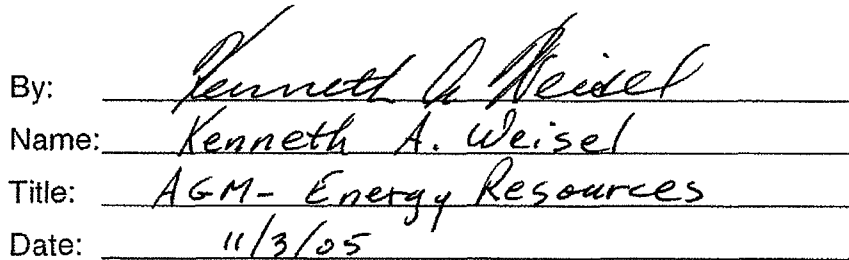 By: Kenneth A Weisel
Name: Kenneth A. Weisel
Title: AGM- Energy Resources
Date: 11/3/05